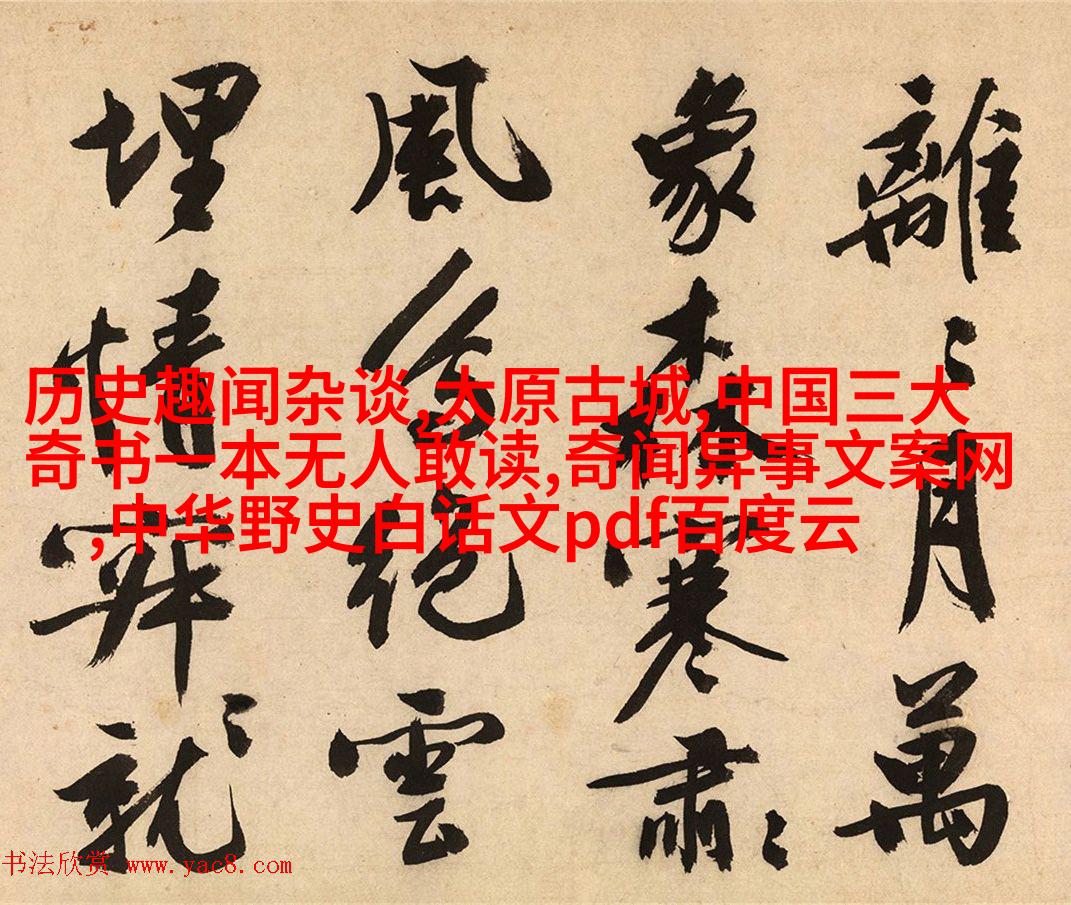 離〻月萬
象森寒肅〻
風絕雲
埋情就〻
历史趣闻杂谈,太原古城,中国三大
奇书一本无人敢读,奇闻异事文案网
,中华野史白话文pdf百度云
书法欣赏 www.yac8.com